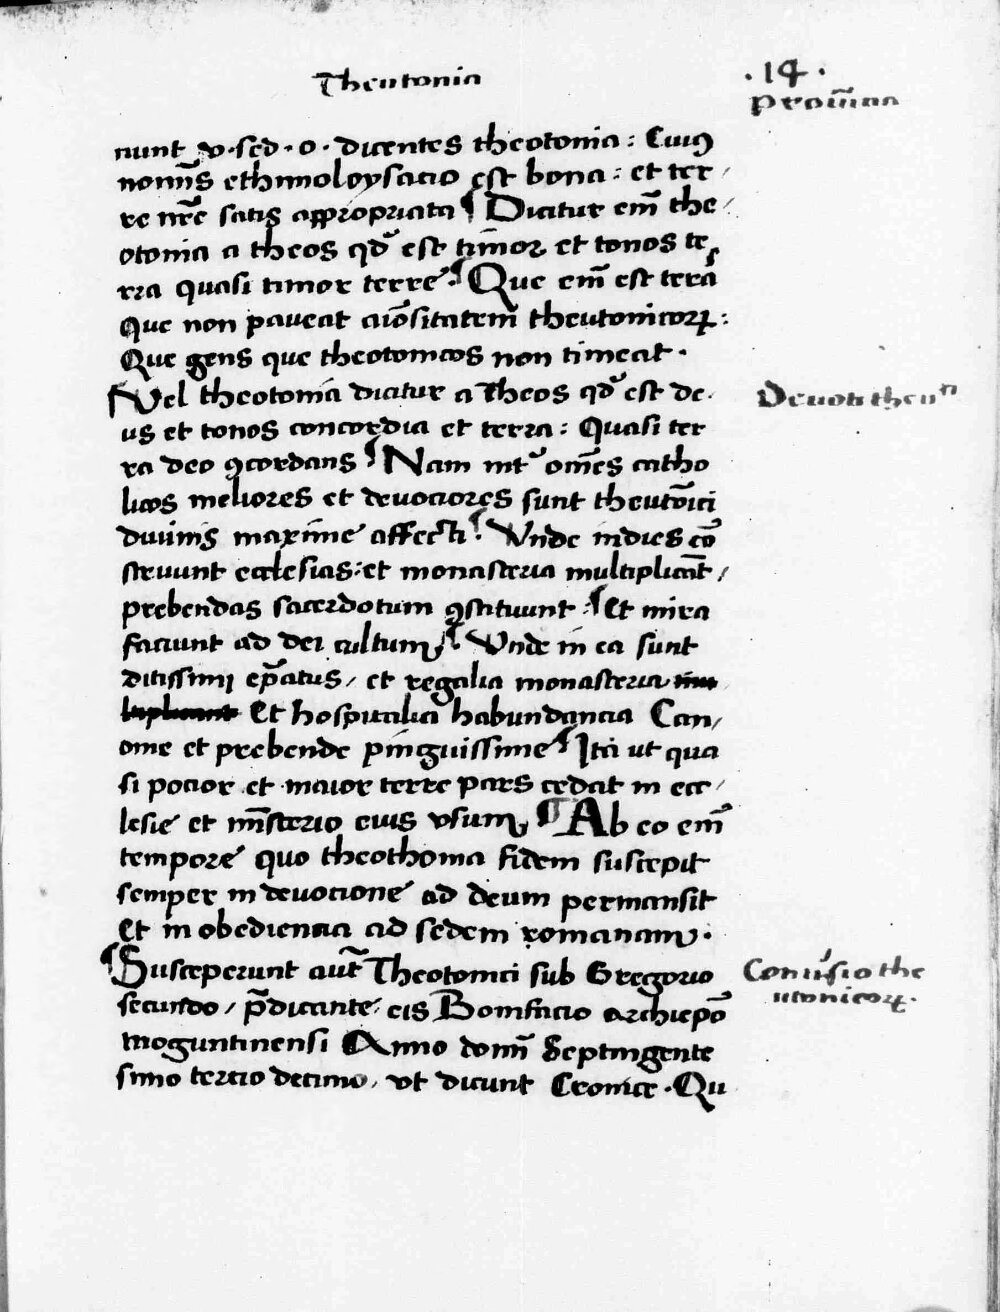 Theutonia
·14·
Prouīcia
nunt v·sed·o·dicentes theotonia: Cuiꝰ
nomīs ethimoloysacio est bona: et ter-
re nr̄e satis appropriata ¶ Dicitur em̄ the-
otonia a theos qd̓ est timor et tonos te
rra quasi timor terre· ¶ Que em̄ est terra
Que non paveat aīositatem theutonicoꝝ:
Que gens que theotonicos non timeat·
¶ Vel theotonia dicitur a Theos qd̓ est de-
us et tonos concordia et terra: Quasi ter
ra deo ꝯcordans ¶ Nam int̓ om̄es catho
licos meliores et devociores sunt theutōici
divinis maxime affecti· ¶ Vnde indies cō
struunt ecclesias: et monasteria multiplicāt,
prebendas sacerdotum ꝯstituunt: ¶ Et mira
faciunt ad dei cultum· ¶ Vnde in ea sunt
ditissimi ep̄atus, et regalia monasteria
Et hospitalia habundancia Can,
onie et prebende pinguissime ¶ Ita ut qua
si pocior et maior terre pars cedat in ecc,
lesie et mīsterio eius vsum, ¶ Ab eo em̄
tempore quo theothonia fidem suscepit
semper in devocione ad deum permansit
Et in obediencia ad sedem romanam·
¶ Susceperunt aūt Theotonici sub Gregorio
secundo, p̄dicante eis Bonifacio archiep̄o
moguntinensi Anno domī Septingente
simo tercio decimo, vt dicunt Cronice· Qu
Devoti theuⁿⁱ
Conūsio the
utonicoꝝ·